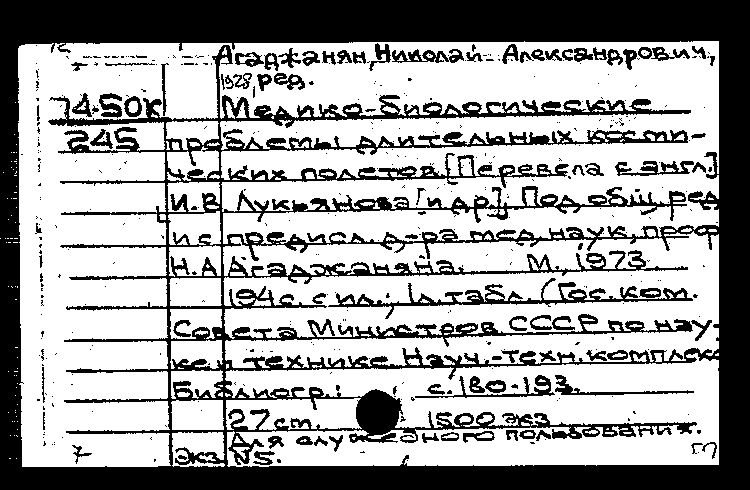 Агаджанян, Николай Александрович,
1928, ред.
74-50К Медико-биологические
245 проблемы длительных косми-
ческих полетов. [Перевела с англ.]
И.В. Лукьянова [и др.]. Под общ. ред
и с предисл. д-ра мед. наук, проф
Н.А Агаджаняна. М., 1973
194с. с ил.; 1л. табл. (Гос. ком.
Совета Министров СССР по нау-
ке и технике. Науч.-техн. комплекс
Библиогр.: с. 180-193.
27 cm. 1500 экз
Для служебного пользования.
экз. №5.